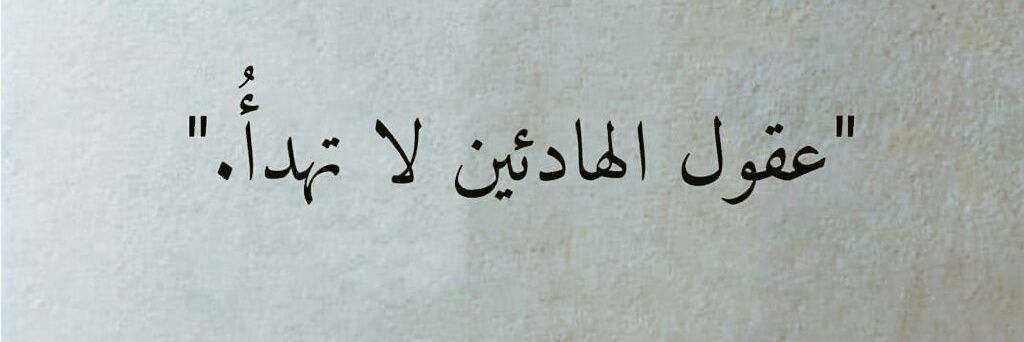 "عقول الهادئين لا تهدأُ."